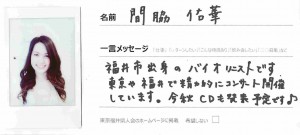 名前 間脇 佑華
一言メッセージ
福井市出身のバイオリニストです。
東京や福井で精力的にコンサート開催
しています。今年CDも発表予定です♪
希望しない □